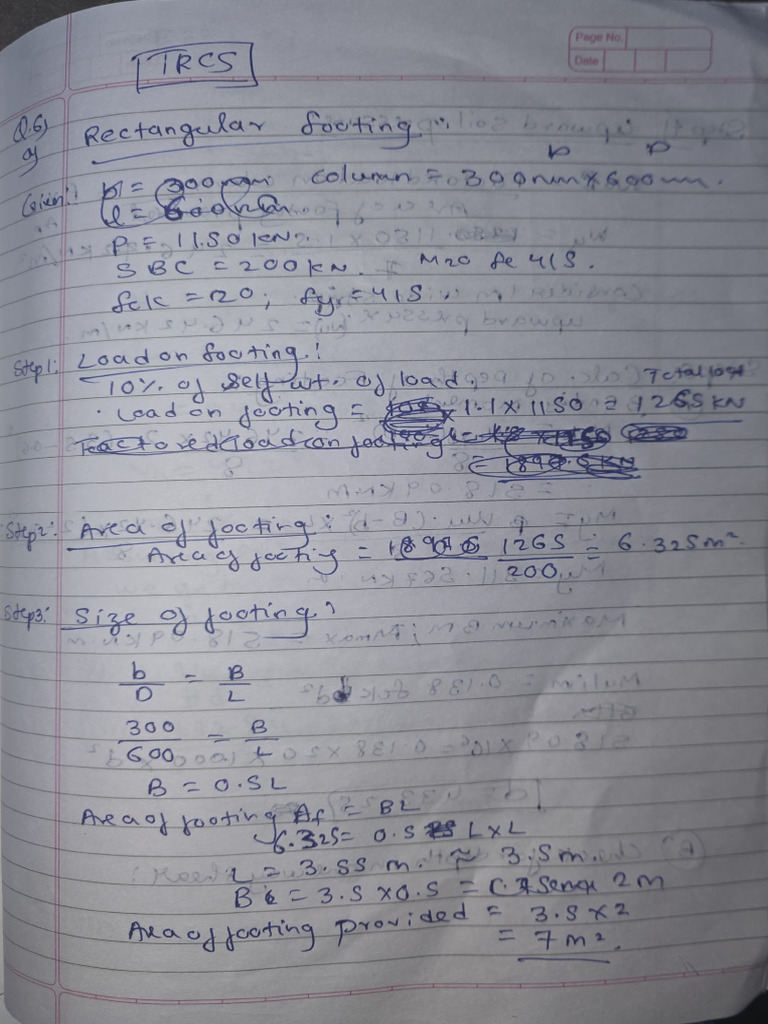 Page No.
Date
TRCS
Q.6)
a)
Rectangular footing :
b D
Given: b = 300mm column = 300mm x 600mm.
l = 600mm
P = 1150 KN.
SBC = 200 KN. M20 fe 415.
fck = 20; fy = 415.
Step1: Load on footing :
10% of self wt. of load. Total load
Load on footing = 1.1 x 1150 = 1265 KN
Factored load on footing
= 1897.5 KN
Step2: Area of footing :
Area of footing = 1265 / 200 = 6.325 m².
Step3: Size of footing :
b/D = B/L
300/600 = B/L
B = 0.5L
Area of footing Af = BL
6.325 = 0.5 L x L
L = 3.55 m. ≈ 3.5 m.
B = 3.5 x 0.5 = 2 m
Area of footing provided = 3.5 x 2
= 7 m².